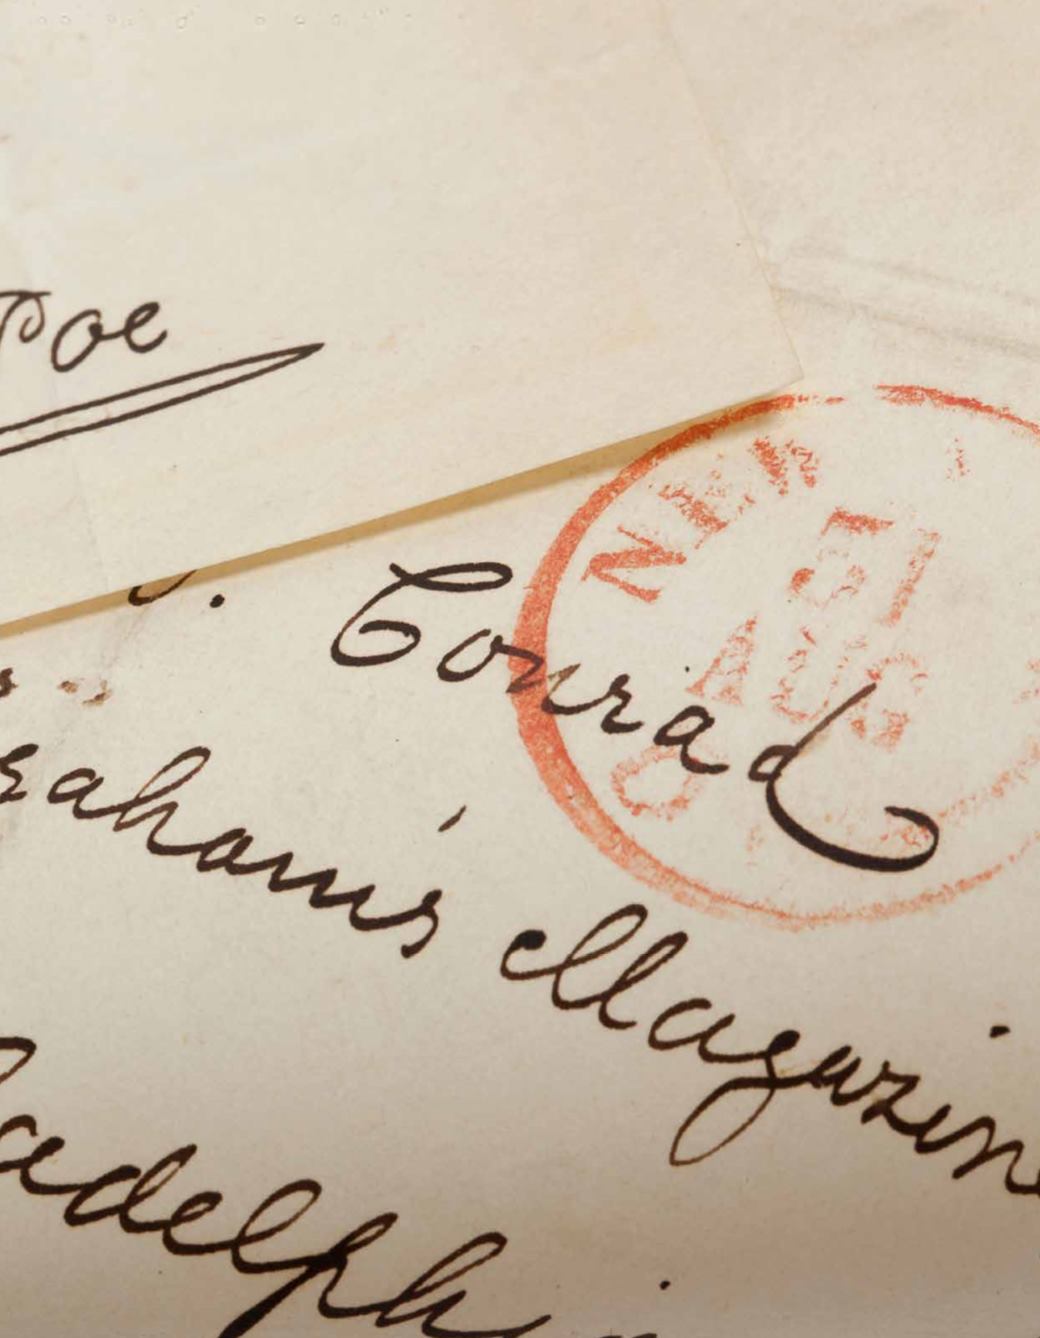 Poe
. Conrad
raham's Magazine
ladelphi
NEW
15
AUG